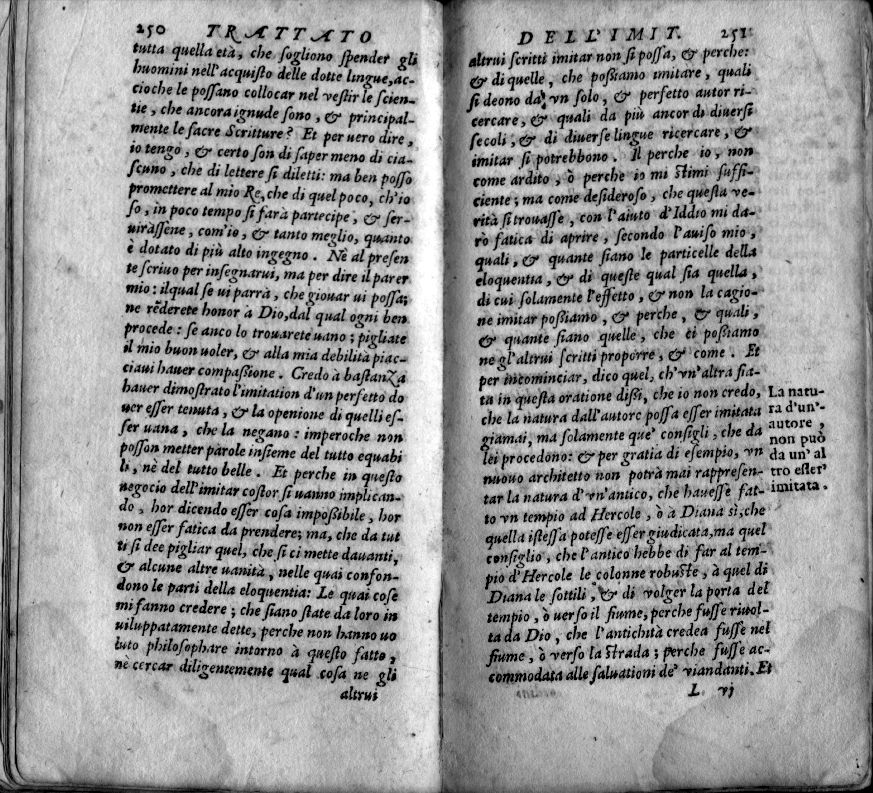 250 TRATTATO
tutta quella età, che ſogliono ſpender gli
huomini nell'acquiſto delle dotte lingue, ac-
cioche le poſſano collocar nel veſtir le ſcien-
tie, che ancora ignude ſono, & principal-
mente le ſacre Scritture? Et per uero dire,
io tengo, & certo ſon di ſaper meno di cia-
ſcuno, che di lettere ſi diletti: ma ben poſſo
promettere al mio Re, che di quel poco, ch'io
ſo, in poco tempo ſi farà partecipe, & ſer-
uiràſſene, com'io, & tanto meglio, quanto
è dotato di più alto ingegno. Nè al preſen
te ſcriuo per inſegnarui, ma per dire il parer
mio: ilqual ſe ui parrà, che giouar ui poſſa;
ne rēderete honor à Dio, dal qual ogni ben
procede: ſe anco lo trouarete uano; pigliate
il mio buon uoler, & alla mia debilità piac-
ciaui hauer compaßione. Credo à baſtanZa
hauer dimoſtrato l'imitation d'un perfetto do
uer eſſer tenuta, & la openione di quelli eſ-
ſer uana, che la negano: imperoche non
poſſon metter parole inſieme del tutto equabi
li, nè del tutto belle. Et perche in queſto
negocio dell'imitar coſtor ſi uanno implican-
do, hor dicendo eſſer coſa impoßibile, hor
non eſſer fatica da prendere; ma, che da tut
ti ſi dee pigliar quel, che ſi ci mette dauanti,
& alcune altre uanità, nelle quai confon-
dono le parti della eloquentia: Le quai coſe
mi fanno credere; che ſiano ſtate da loro in
uiluppatamente dette, perche non hanno uo
luto philoſophare intorno à queſto fatto,
nè cercar diligentemente qual coſa ne gli
altrui
DELL'IMIT. 251
altrui ſcritti imitar non ſi poſſa, & perche:
& di quelle, che poßiamo imitare, quali
ſi deono da vn ſolo, & perfetto autor ri-
cercare, & quali da più ancor di diuerſi
ſecoli, & di diuerſe lingue ricercare, &
imitar ſi potrebbono. Il perche io, non
come ardito, ò perche io mi ſtimi ſuffi-
ciente; ma come deſideroſo, che queſta ve-
rità ſi trouaſſe, con l'aiuto d'Iddio mi da-
rò fatica di aprire, ſecondo l'auiſo mio,
quali, & quante ſiano le particelle della
eloquentia, & di queſte qual ſia quella,
di cui ſolamente l'effetto, & non la cagio-
ne imitar poßiamo, & perche, & quali,
& quante ſiano quelle, che ci poßiamo
ne gl'altrui ſcritti proporre, & come. Et
per incominciar, dico quel, ch'vn'altra fia-
ta in queſta oratione dißi, che io non credo,
che la natura dall'autore poſſa eſſer imitata
giamai, ma ſolamente que' conſigli, che da
lei procedono: & per gratia di eſempio, vn
nuouo architetto non potrà mai rappreſen-
tar la natura d'vn'antico, che haueſſe fat-
to vn tempio ad Hercole, ò à Diana sì, che
quella iſteſſa poteſſe eſſer giudicata, ma quel
conſiglio, che l'antico hebbe di far al tem-
pio d'Hercole le colonne robuſte, à quel di
Diana le ſottili, & di volger la porta del
tempio, ò uerſo il fiume, perche fuſſe riuol-
ta da Dio, che l'antichità credea fuſſe nel
fiume, ò verſo la ſtrada; perche fuſſe ac-
commodata alle ſaluationi de' viandanti. Et
L vj
La natu-
ra d'un'
autore,
non può
da un' al
tro eſſer
imitata.